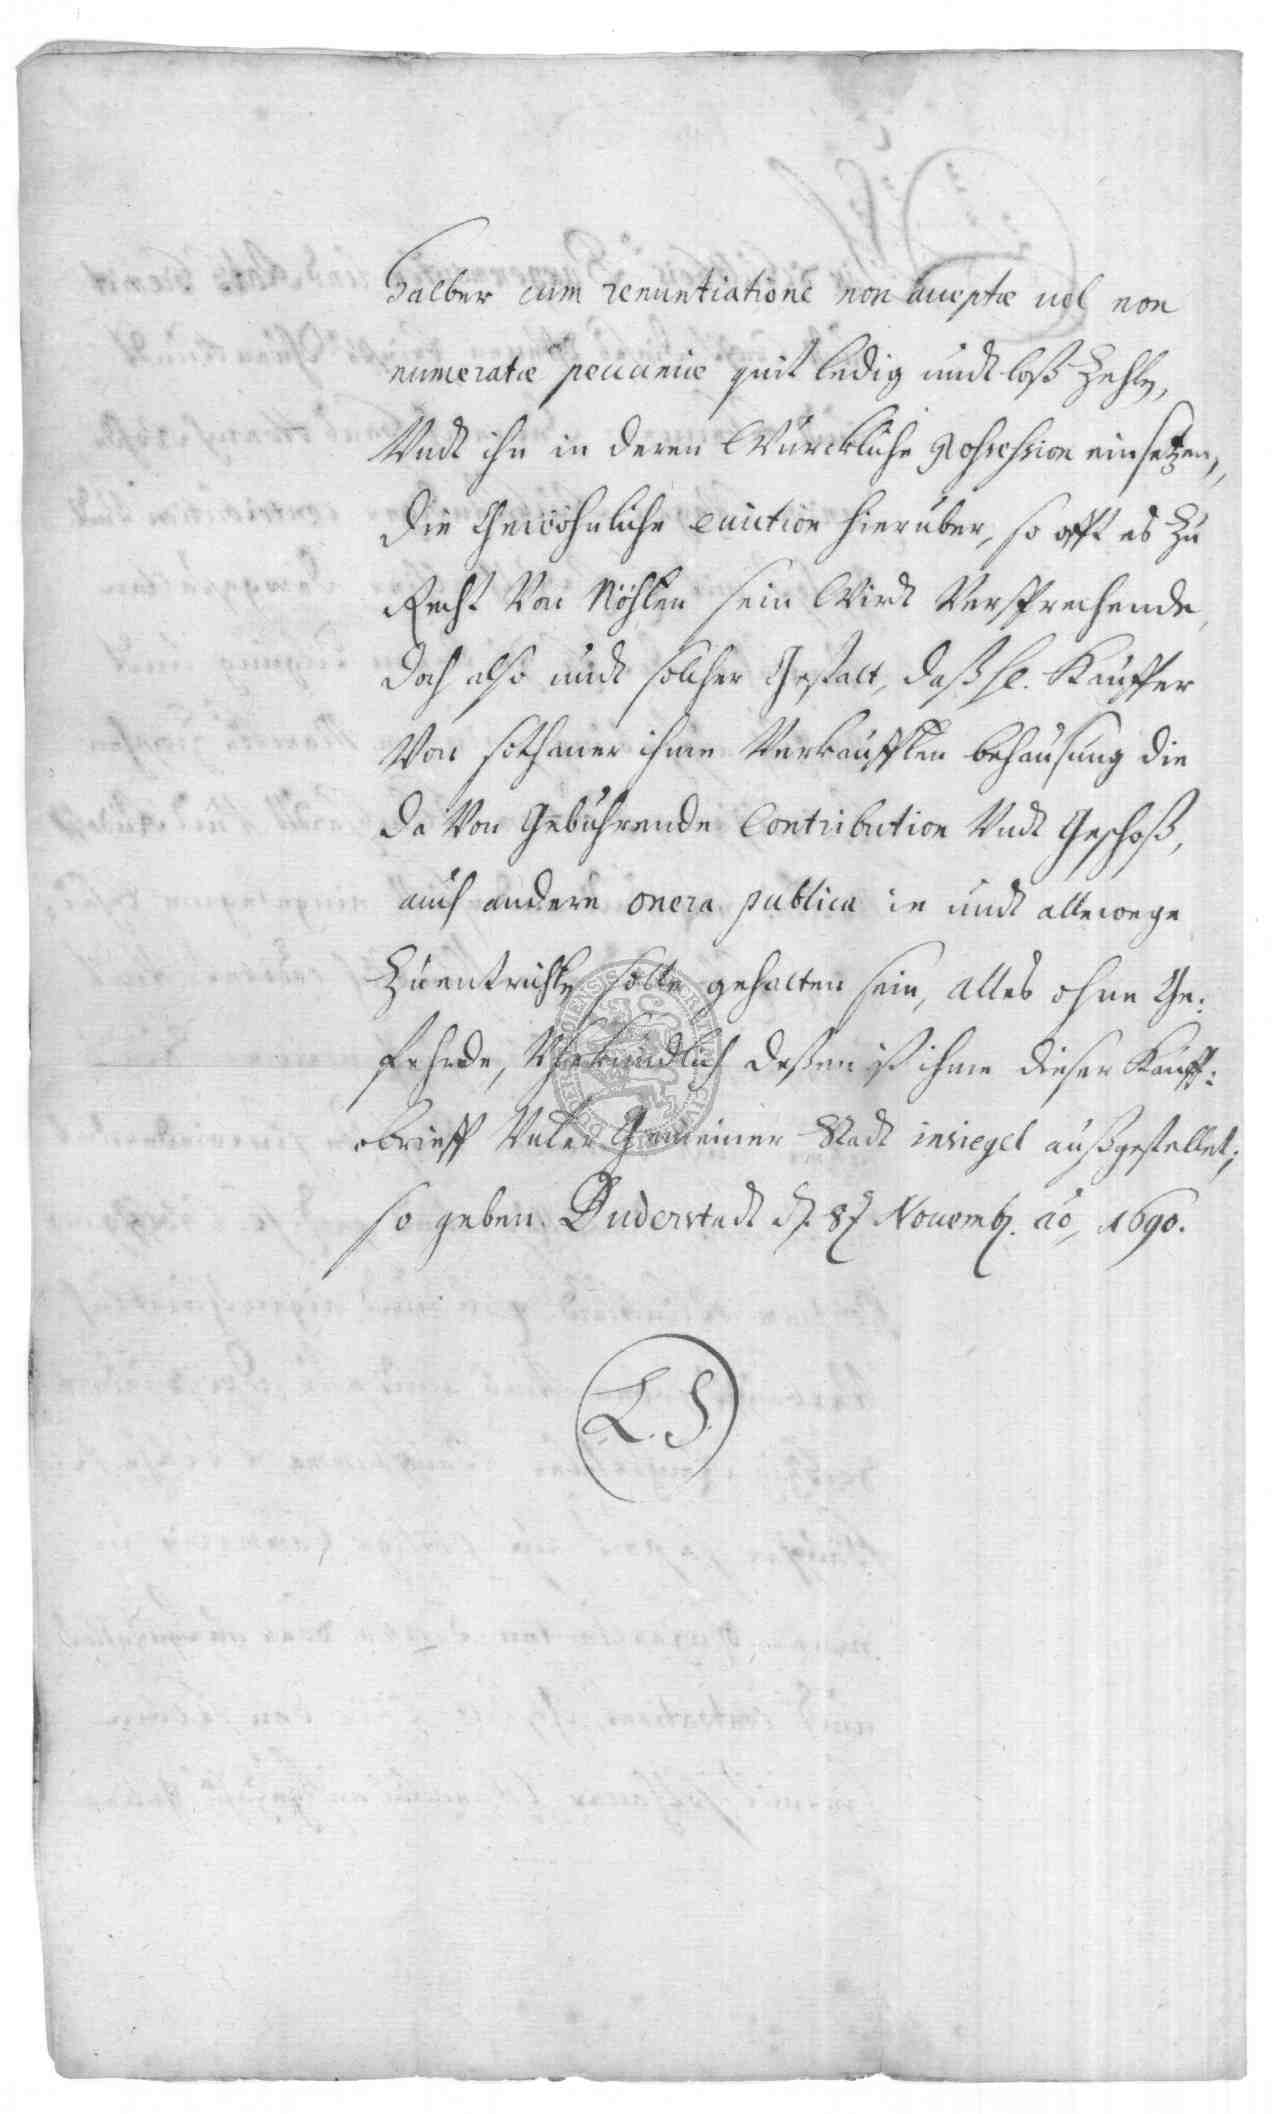 halber cum renuntiatione non acceptæ vel non
numeratæ pecuniæ quit ledig undt loß Zehlen,
Undt ihn in deren Würckliche Possession einsetzen,
die Gewöhnliche eviction hierüber, so offt es Zu
Recht Von Nöhten sein Wirdt Versprechende,
doch also undt solcher Gestalt, daß h. Kauffer
Von sothaner ihme Verkaufften behausung die
da Von Gebührende Contribution Undt Geschoß,
auch andere onera publica in undt allewege
Zuentrichten solle gehalten sein, Alles ohne Ge:
fehrde, Uhrkundlich deßen ist ihme dieser Kauff:
brieff Unter Gemeiner Stadt insiegel außgestellet;
so geben Duderstadt d. 8t Novemb. ao, 1690.
L. S.